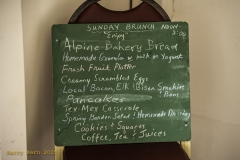 SUNDAY BRUNCH NOON-
"Enjoy" 2:00
Alpine Bakery Bread
Homemade Granola w/ milk or Yogurt
Fresh Fruit Platter
Creamy Scrambled Eggs
Local Bacon, Elk & Bison Smokies
& Buns
Pancakes
Tex-Mex Casserole
Spring Garden Salad & Homemade Dressing
Cookies & Squares
Coffee, Tea & Juices